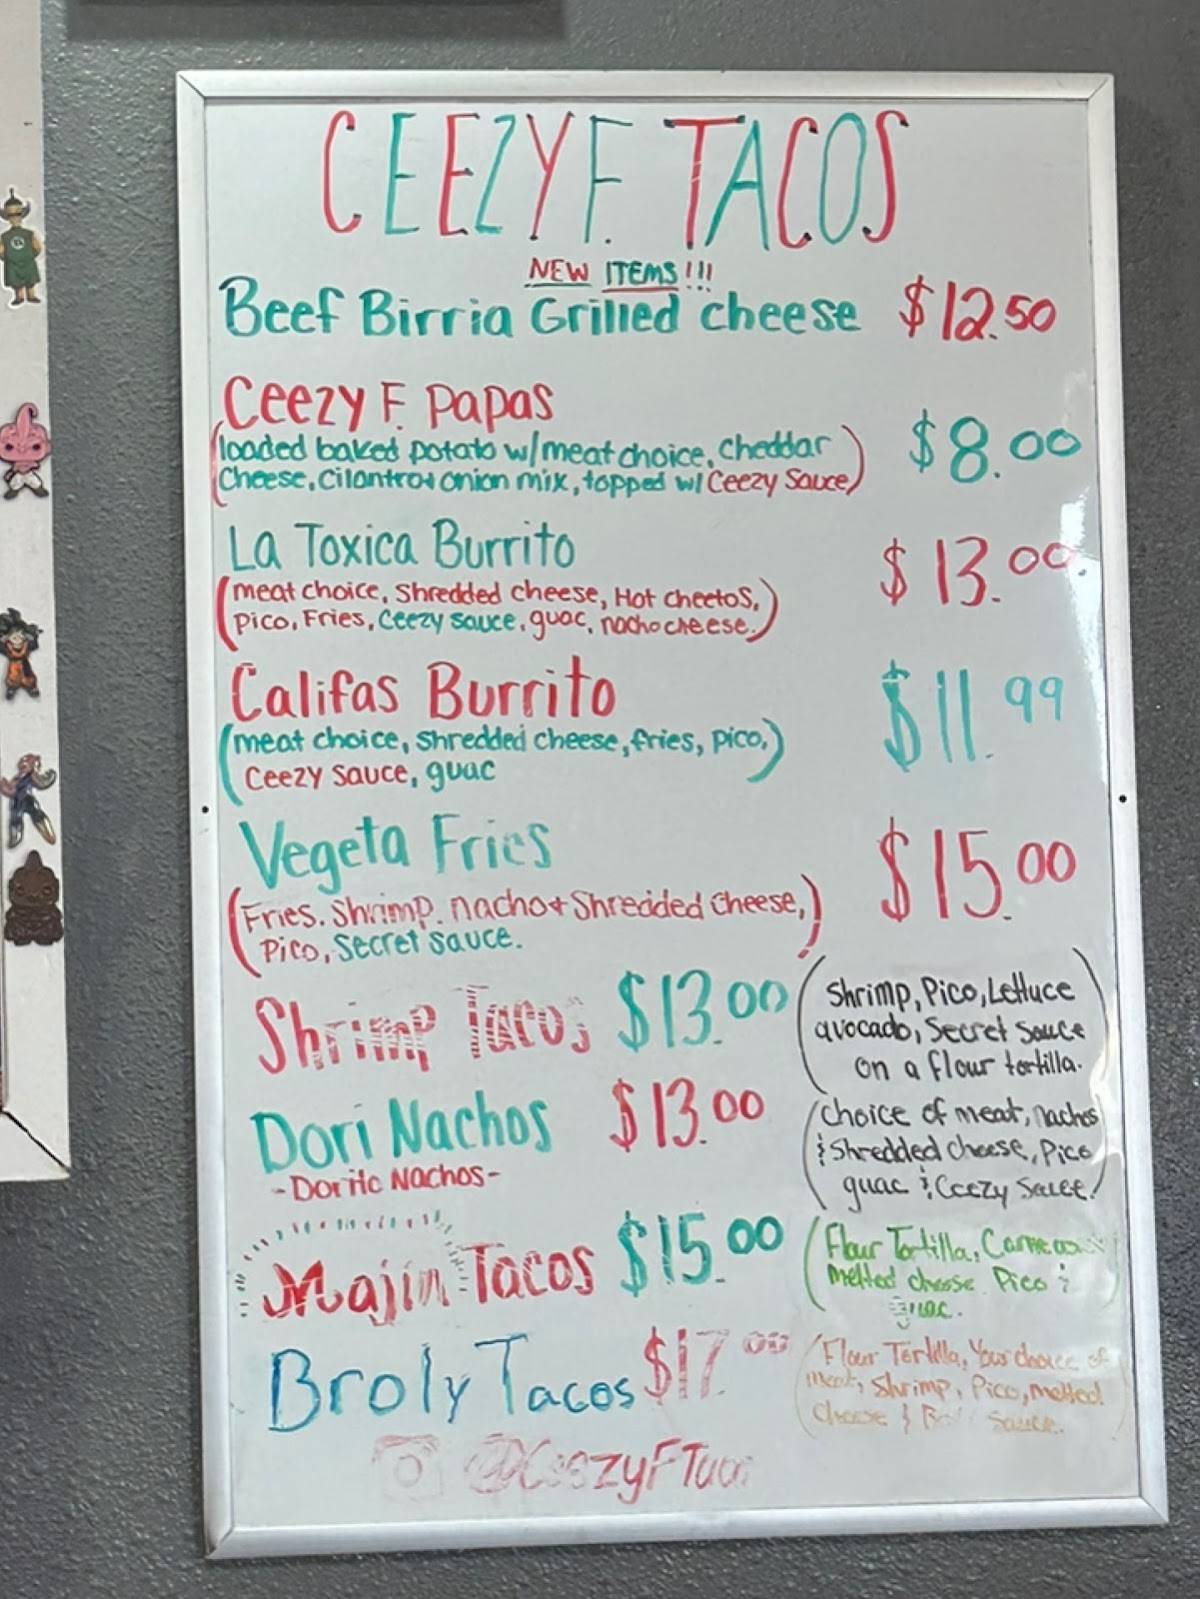 CEEZY F. TACOS
NEW ITEMS!!!
Beef Birria Grilled cheese $12.50
Ceezy F. Papas $8.00
(loaded baked potato w/meat choice, cheddar
Cheese, Cilantro + onion mix, topped w/ Ceezy Sauce)
La Toxica Burrito $13.00
(meat choice, Shredded cheese, Hot cheetos,
pico, Fries, Ceezy sauce, guac, nacho cheese.)
Califas Burrito $11.99
(meat choice, shredded cheese, fries, pico,)
Ceezy sauce, guac
Vegeta Fries $15.00
(Fries. Shrimp. nacho + Shredded Cheese,)
Pico, Secret sauce.
Shrimp Tacos $13.00
(Shrimp, Pico, Lettuce
avocado, Secret sauce
on a flour tortilla.
Dori Nachos $13.00
-Dorito Nachos-
(Choice of meat, nachos
& Shredded cheese, Pico
guac & Ceezy Sauce)
Majin Tacos $15.00
(Flour Tortilla, Carne
melted cheese Pico &
guac.
Broly Tacos $17.00
(Flour Tortilla, Your choice of
meat, Shrimp, Pico, melted
cheese & sauce.
@CeezyFTacos